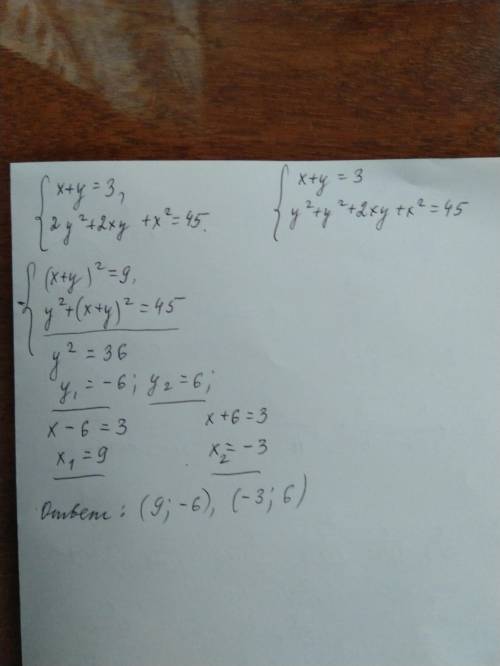 x+y=3,
2y²+2xy+x²=45.
x+y=3
y²+y²+2xy+x²=45
(x+y)²=9,
y²+(x+y)²=45
y²=36
y₁=-6; y₂=6;
x-6=3 x+6=3
x₁=9 x₂=-3
Ответ: (9;-6), (-3;6)